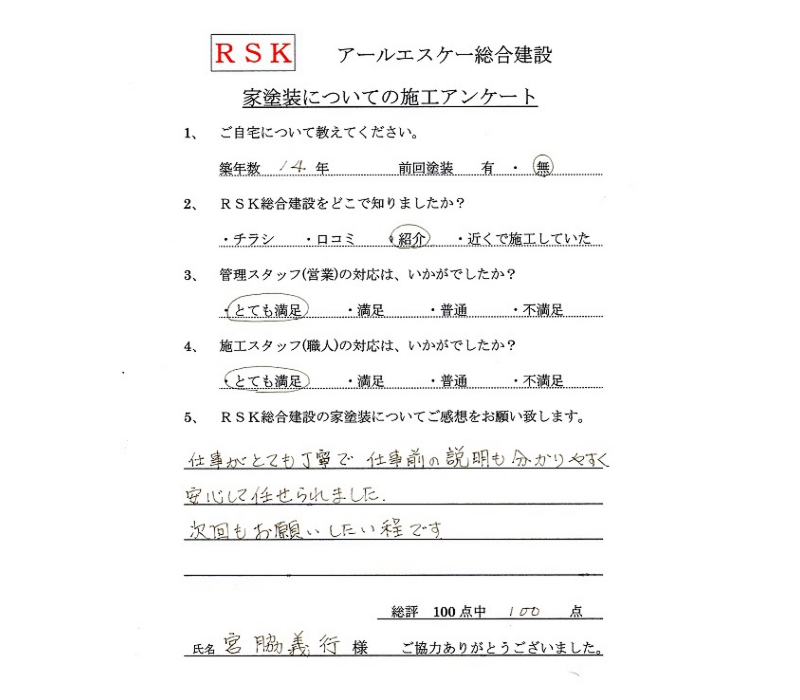 RSK アールエスケー総合建設
家塗装についての施工アンケート
1、 ご自宅について教えてください。
築年数 14 年 前回塗装 有 ・ 無
2、 RSK総合建設をどこで知りましたか？
・チラシ ・口コミ ・紹介 ・近くで施工していた
3、 管理スタッフ(営業)の対応は、いかがでしたか？
・とても満足 ・満足 ・普通 ・不満足
4、 施工スタッフ(職人)の対応は、いかがでしたか？
・とても満足 ・満足 ・普通 ・不満足
5、 RSK総合建設の家塗装についてご感想をお願い致します。
仕事がとても丁寧で 仕事前の説明も分かりやすく
安心して任せられました.
次回もお願いしたい程です
総評 100点中 100 点
氏名 宮脇義行 様 ご協力ありがとうございました。